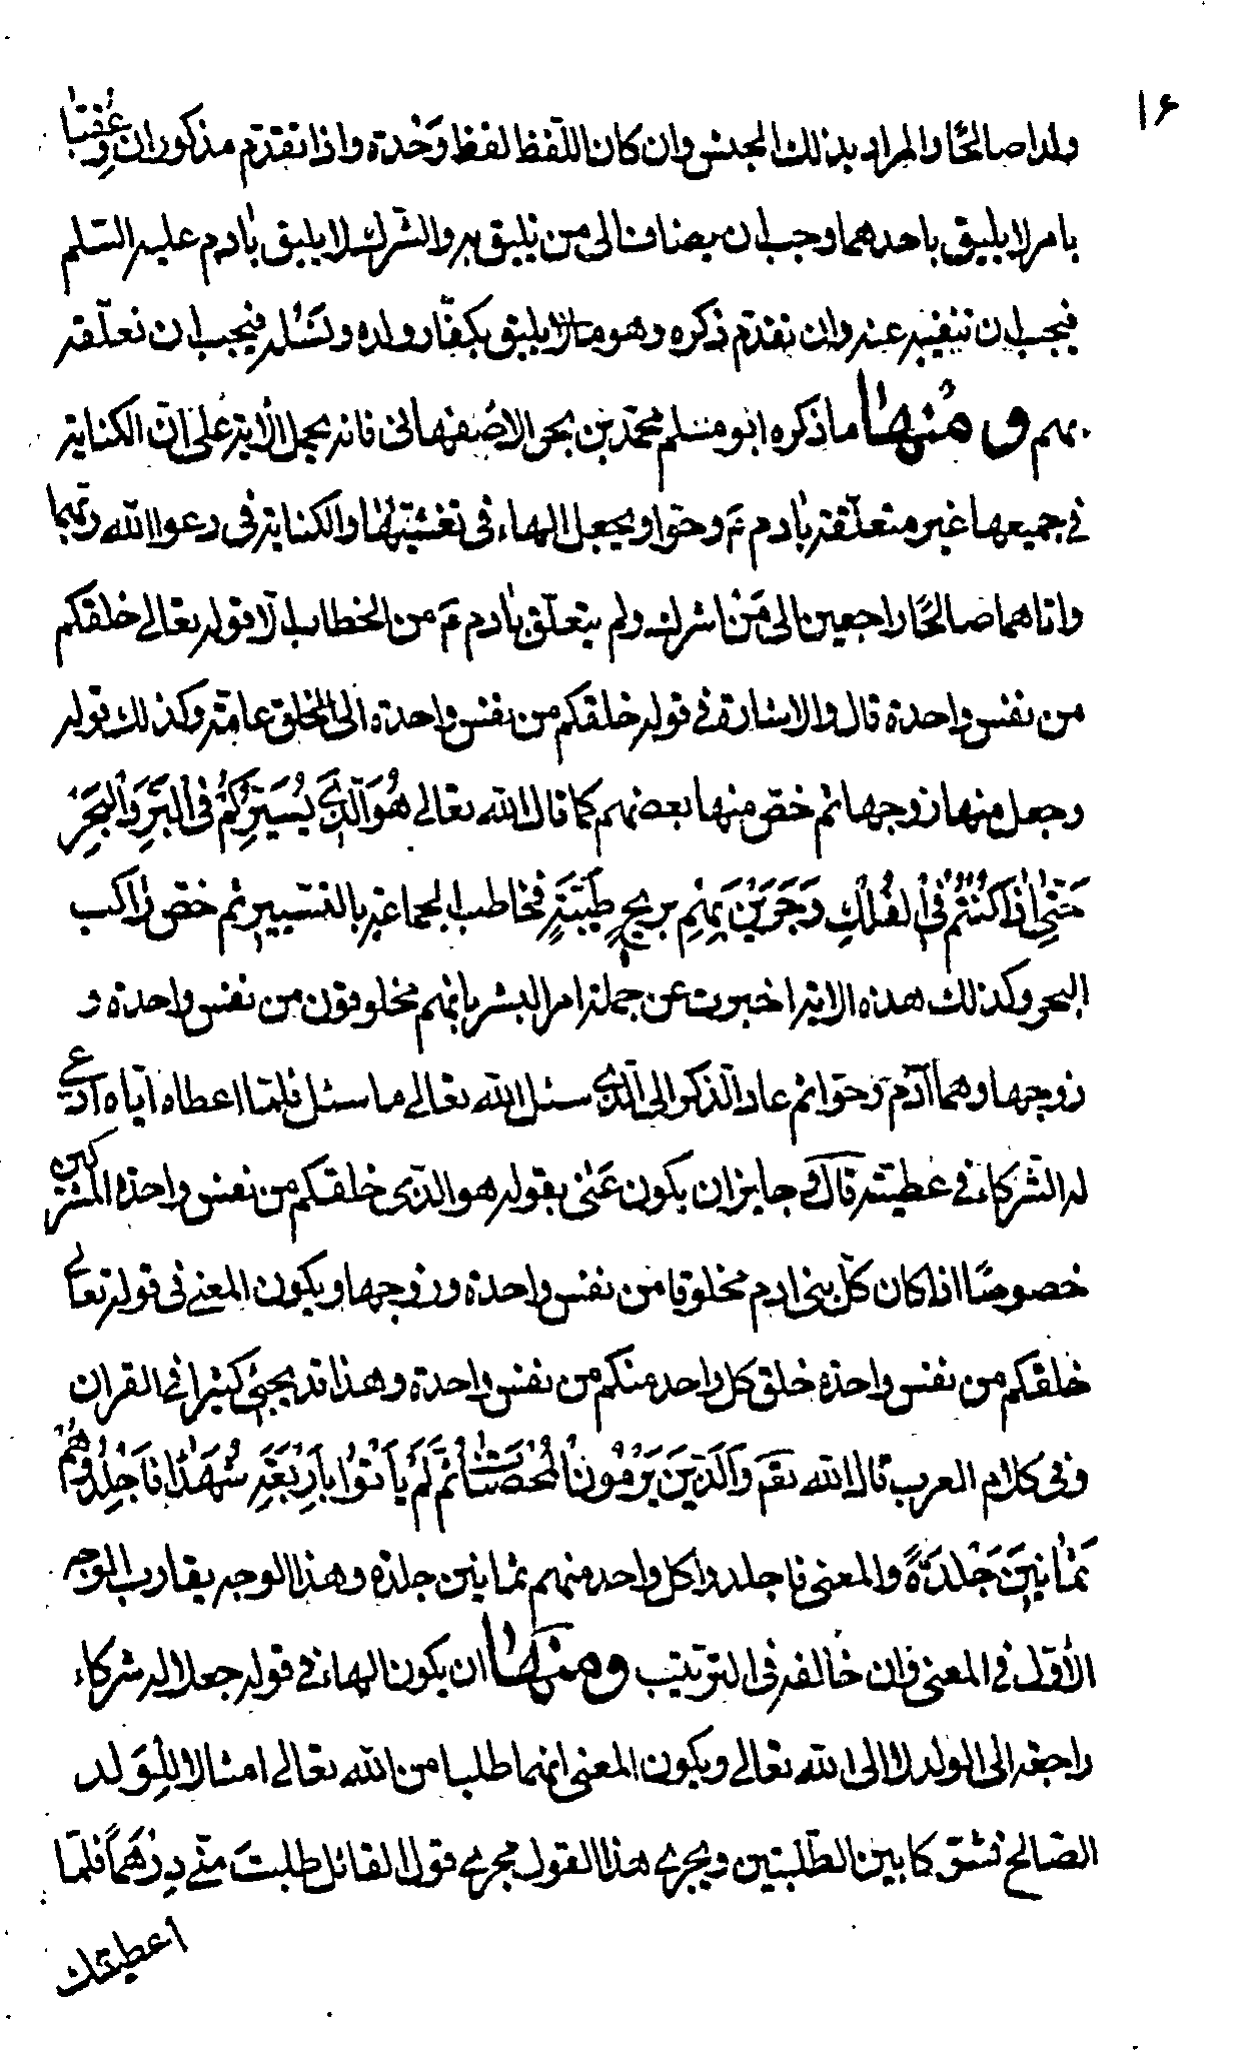 ١۶
ولدا صالحًا والمراد بذلك الجنس وان كان اللّفظ لفظ وَحْدة واذا تقدّم مذكوران وعُقّبا
بامر لا يليق باحدهما وجب ان يضاف الى من يليق به والشّرك لا يليق بٰادم عليه السّلم
فيجب ان ننفيه عنه وان تقدّم ذكره وهو ممّا يليق بكفّار ولده ونَسْله فيجب ان نعلّقه
بهم ومنها ما ذكره ابو مسلم محمّد بن بحر الاصْفهانى فانه يحمل الاٰية على انّ الكناية
فى جميعها غير متعلّقة بٰادم ع وحوّا ويجعل الهاء فى تغشّيٰهٰا والكناية فى دعوا الله ربّهما
واتاهما صالحًا راجعين الى مَنْ اشرك ولم يتعلّق بٰادم ع من الخطاب الّا قوله تعالى خلقكم
من نفس واحدة قال والاشارة فى قوله خلقكم من نفس واحدة الى الخلق عامّة وكذلك قوله
وجعل منها زوجها ثم خصّ منها بعضهم كما قال الله تعالى هُوَ الَّذِي يُسَيِّرُكُمْ فِى الْبَرِّ وَالْبَحْرِ
حَتّٰى اِذَا كُنْتُمْ فِى الْفُلْكِ وَجَرَيْنَ بِهِمْ بِرِيحٍ طَيِّبَةٍ فخاطب الجماعة بالتّسيير ثم خصّ رٰاكب
البحر وكذلك هذه الاية اخبرت عن جملة امر البشر بانّهم مخلوقون من نفس واحدة و
زوجها وهما آدَم وَحوّا ثم عاد الذّكر الى الّذى سئل الله تعالى ما سئل فلمّا اعطاه ايّاه ادّعى
له الشّركاء فى عطيته قال وجايز ان يكون عَنٰى بقوله هو الذى خلقكم من نفس واحدة المشركين
خصوصًا اذا كان كلّ بنى ادم مخلوقا من نفس واحدة وزوجها ويكون المعنى فى قوله تعالى
خلقكم من نفس واحدة خلق كل واحد منكم من نفس واحدة وهذا قد يجيئ كثيرا فى القران
وفى كلام العرب قال الله تعَ وَالَّذِينَ يَرْمُونَ الْمُحْصَنٰاتِ ثُمَّ لَمْ يَأْتُوا بِأَرْبَعَةِ شُهَدٰاءَ فَاجْلِدُوهُمْ
ثَمٰانِينَ جَلْدَةً والمعنى فاجلدوا كل واحد منهم ثمانين جلدة وهذا الوجه يقارب الوجه
الأوّل فى المعنى وان خٰالفه فى الترتيب ومنها ان يكون الهاء فى قوله جعلا له شركاء
راجعة الى الولد لا الى الله تعالى ويكون المعنى انهما طلبا من الله تعالى امثالا للوَلد
الصّالح فشرّكا بين الطّلبتين ويجرى هذا القول مجرى قول القائل طلبت منّى دِرْهَمًا فلمّا
اعطيتك